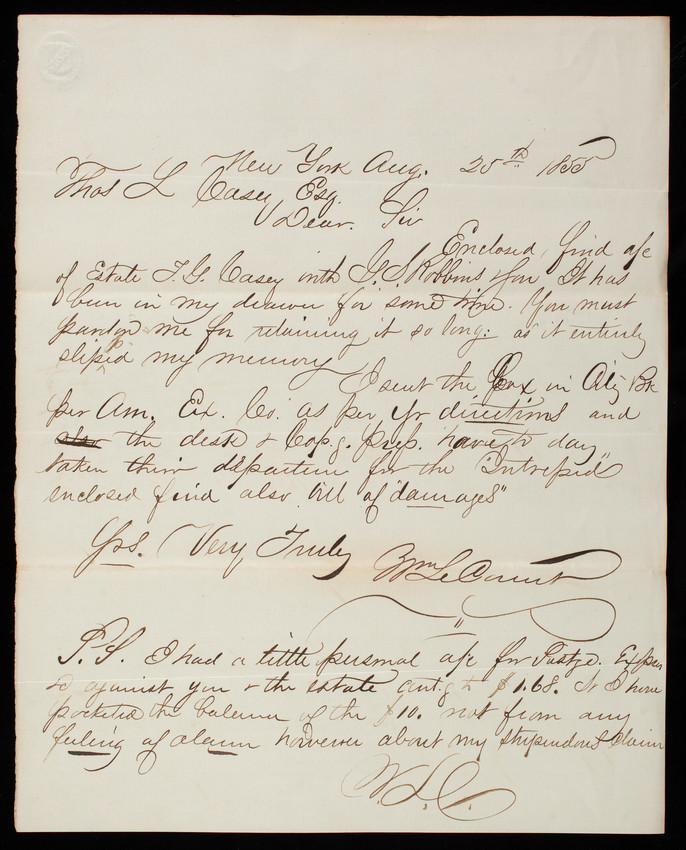 New York Aug. 25th 1855
Thos L Casey Esq.
Dear. Sir
Enclosed, find a/c
of Estate T. G. Casey with G. S. Robbins & Son It has
been in my drawer for some time. You must
pardon me for retaining it so long: as it entirely
sliped my memory
I sent the Box in City Bk
per Am. Ex. Co. as per yr directions and
also the desk & Cop.g. prep. have to day
taken their departure for the "Intrepid"
enclosed find also bill of "damages"
Yrs. Very Truly
Wm Le Count
"
P.S. I had a little personal a/c for Postge. Expen
against you & the estate amt.g to $1.68. So I have
pocketed the balance of the $10. not from any
feeling of alarm however about my stupendous Claim
W. L. C.